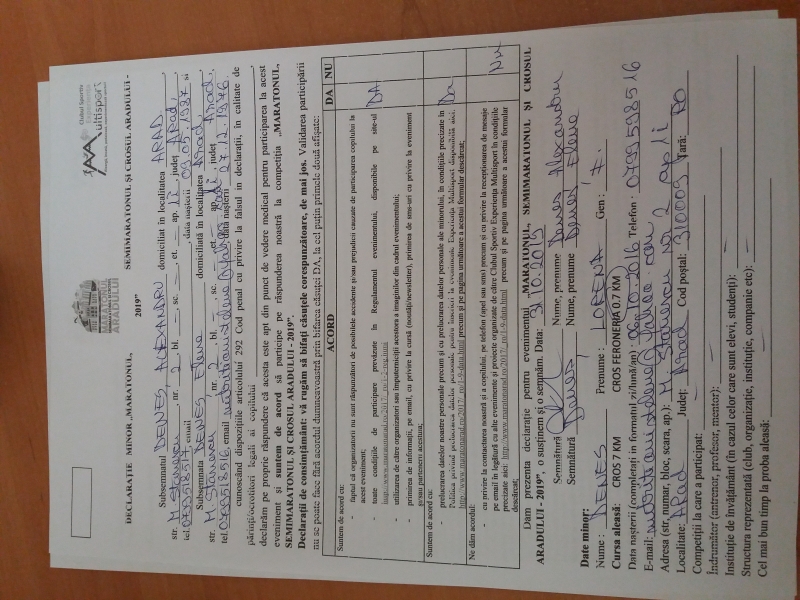 Clubul Sportiv
Multisport
MARATONUL
ARADULUI
DECLARAȚIE MINOR „MARATONUL, SEMIMARATONUL ȘI CROSUL ARADULUI -
2019”
Subsemnatul DENES ALEXANDRU domiciliat în localitatea ARAD,
str. M Stănescu, nr. 2, bl. –, sc. –, et. –, ap. 11, județ Arad,
tel. email data nașterii 09.05.1987 și
Subsemnata DENES Elena domiciliată în localitatea Arad,
str. M Stănescu, nr. 2, bl. –, sc. –, et. –, ap. județ Arad,
tel. email data nașterii 27.12.1976,
părinți/ocrotitori legali ai copilului
cunoscând dispozițiile articolului 292 Cod penal cu privire la falsul în declarații, în calitate de
declarăm pe proprie răspundere că acesta este apt din punct de vedere medical pentru participarea la acest
eveniment și suntem de acord să participe pe răspunderea noastră la competiția „MARATONUL,
SEMIMARATONUL ȘI CROSUL ARADULUI - 2019”.
Declarații de consimțământ: vă rugăm să bifați căsuțele corespunzătoare, de mai jos. Validarea participării
nu se poate face fără acordul dumneavoastră prin bifarea căsuței DA, la cel puțin primele două afișate:
ACORD DA NU
Suntem de acord cu:
- faptul că organizatorii nu sunt răspunzători de posibilele accidente și/sau prejudicii cauzate de participarea copilului la
acest eveniment;
- toate condițiile de participare prevăzute în Regulamentul evenimentului, disponibile pe site-ul DA
- utilizarea de către organizatori sau împuterniciții acestora a imaginilor din cadrul evenimentului;
- primirea de informații, pe email, cu privire la cursă (noutăți/newsletter), primirea de sms-uri cu privire la eveniment
și/sau partenerii acestuia;
Suntem de acord cu:
- prelucrarea datelor noastre personale precum și cu prelucrarea datelor personale ale minorului, în condițiile precizate în Da
Ne dăm acordul:
- cu privire la contactarea noastră și a copilului, pe telefon (apel sau sms) precum și cu privire la recepționarea de mesaje Nu
pe email în legătură cu alte evenimente și proiecte organizate de către Clubul Sportiv Experiența Multisport în condițiile
precizate aici: precum și pe pagina următoare a acestui formular
descărcat;
Dăm prezenta declarație pentru evenimentul „MARATONUL, SEMIMARATONUL ȘI CROSUL
ARADULUI - 2019”, o susținem și o semnăm. Data: 31.10.2019
Semnătură Nume, prenume Denes Alexandru
Semnătură Denes Nume, prenume Denes Elena
Date minor:
Nume : DENES Prenume : LORENA Gen : F.
Cursa aleasă: CROS 7 KM CROS FERONERIA 0.7 KM
Data nașterii (completați în formatul zi/lună/an) : Telefon : 0799598516
E-mail:
Adresa (str, numar, bloc, scara, ap.): M Stănescu nr 2 ap 11
Localitate: Arad Județ: Arad Cod poștal: 310009 Țară: RO
Competiții la care a participat: –
Îndrumător (antrenor, profesor, mentor): –
Instituție de învățământ (în cazul celor care sunt elevi, studenți): –
Structura reprezentată (club, organizație, instituție, companie etc): –
Cel mai bun timp la proba aleasă: –